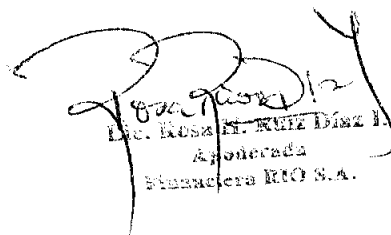 Lic. Rosa H. Ruiz Díaz F.
Apoderada
Financiera RIO S.A.